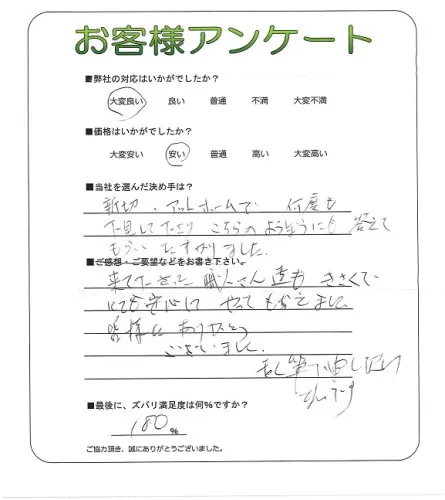 お客様アンケート
■弊社の対応はいかがでしたか？
大変良い 良い 普通 不満 大変不満
■価格はいかがでしたか？
大変安い 安い 普通 高い 大変高い
■当社を選んだ決め手は？
親切、アットホームで 何度も
下見して下さり こちらのようぼうにも 答えて
もらい たすかりました。
■ご感想・ご要望などをお書き下さい。
来て下さった 職人さん達も きさくで
安心して やってもらえました。
皆様に ありがとう
ございました。
乱筆で申し訳
ないです
■最後に、ズバリ満足度は何％ですか？
100 %
ご協力頂き、誠にありがとうございました。